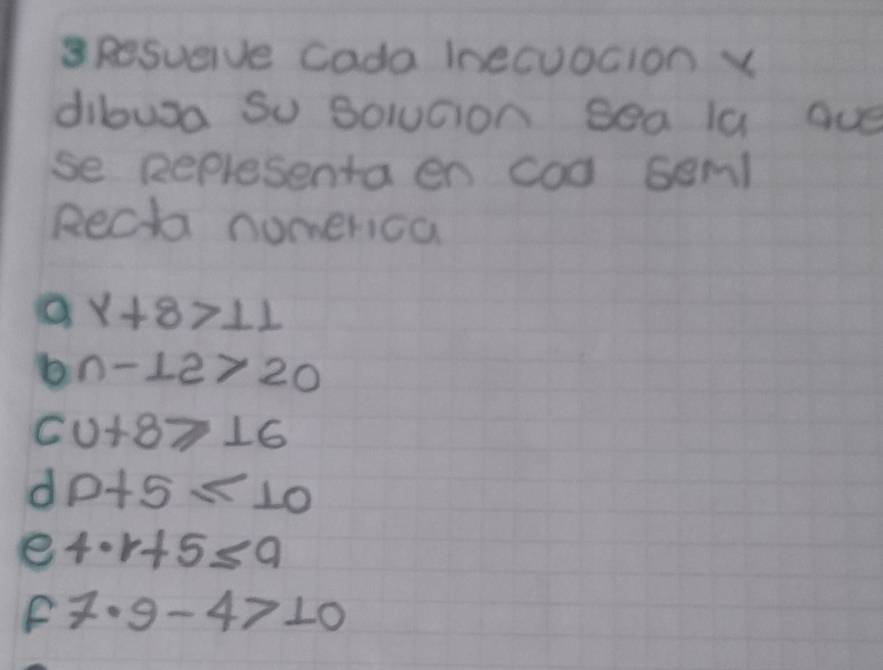 3 Resuelve cada Inecuacion y
dibuja su solucion sea la que
se Replesenta en cad semi
Recta numerica
a y+8>11
b n-12>20
c u+8⩾16
d p+5<10
e 4·r+5≤9
f 7·9-4>10